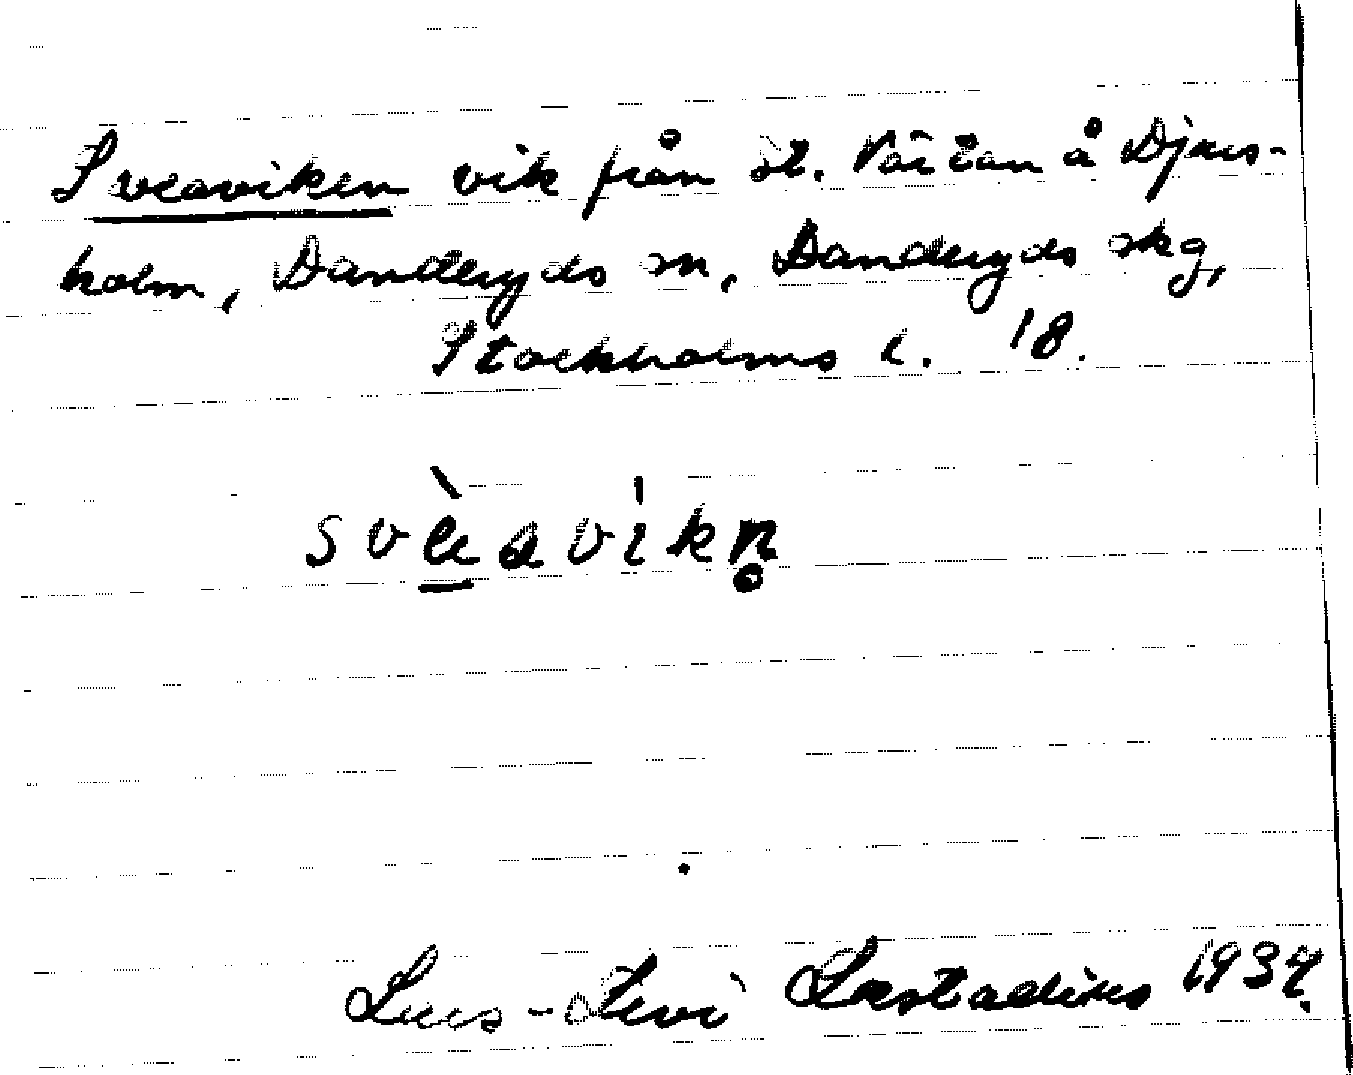 Sveaviken vik från St. Värtan å Djurs-
holm, Danderyds sn, Danderyds skg,
Stockholms l. 18.
svèavikn̥
Lars-Levi Læstadius 1934.